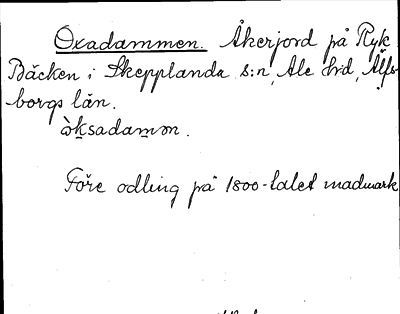 Oxadammen. Åkerjord på Ryk
Bäcken i Skepplanda s:n, Ale hrd, Älfs-
borgs län.
òk̲sadam̲ən.
Före odling på 1800-talet madmark